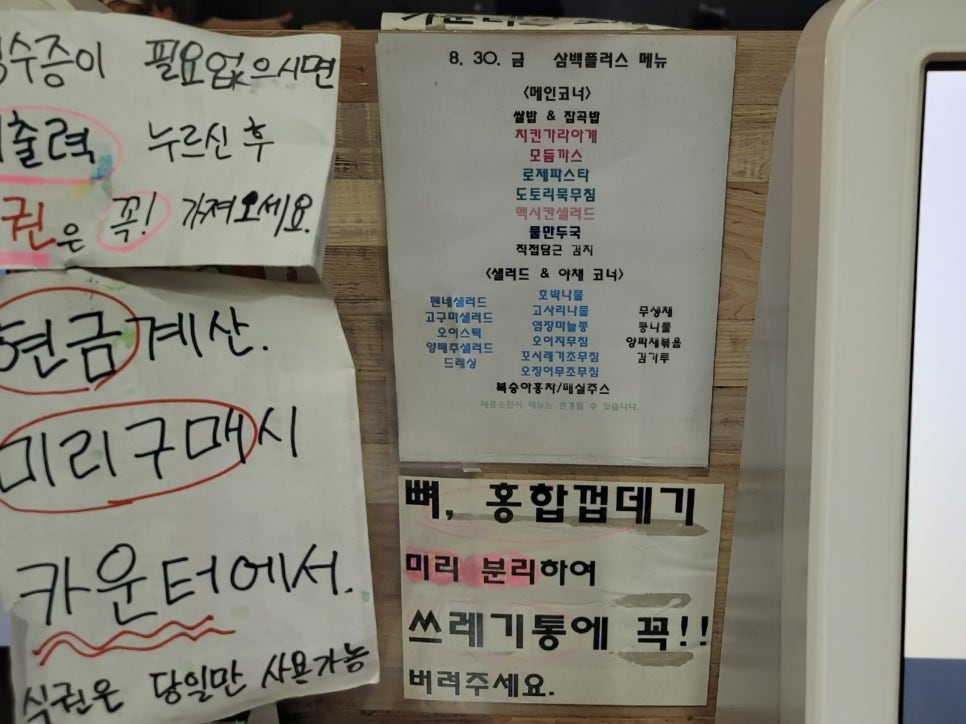 영수증이 필요없으시면
미출력 누르신 후
식권은 꼭! 가져오세요.
현금계산.
미리구매시
카운터에서.
식권은 당일만 사용가능
8. 30. 금 삼백플러스 메뉴
<메인코너>
쌀밥 & 잡곡밥
치킨가라아게
모듬까스
로제파스타
도토리묵무침
멕시칸샐러드
물만두국
직접담근 김치
<샐러드 & 야채 코너>
펜네샐러드
고구마샐러드
오이스틱
양배추샐러드
드레싱
호박나물
고사리나물
염장마늘쫑
오이지무침
꼬시래기초무침
오징어무초무침
무생채
콩나물
양파채볶음
김가루
복숭아홍차/매실주스
재료소진시 메뉴는 변경될 수 있습니다.
뼈, 홍합껍데기
미리 분리하여
쓰레기통에 꼭!!
버려주세요.